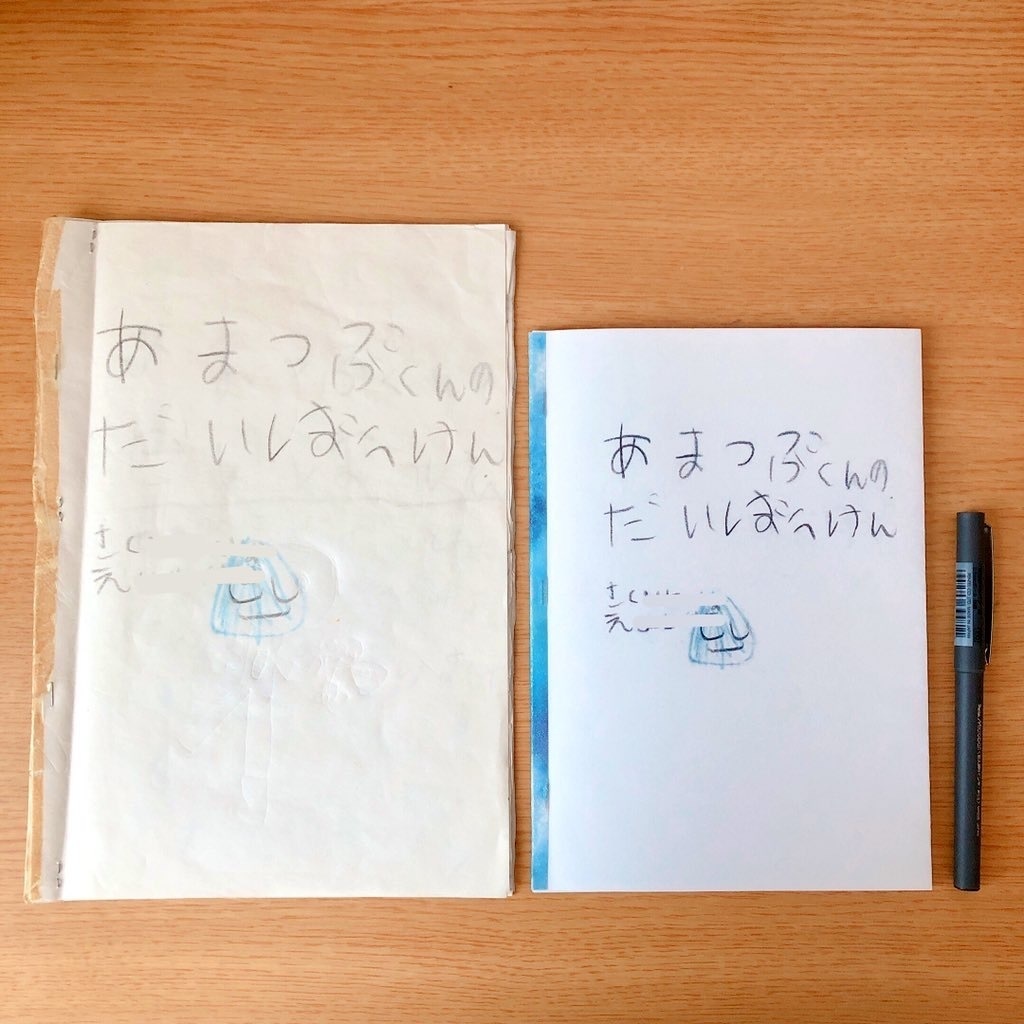 あまつぶくんの
だいぼうけん
さく
え
あまつぶくんの
だいぼうけん
さく
え